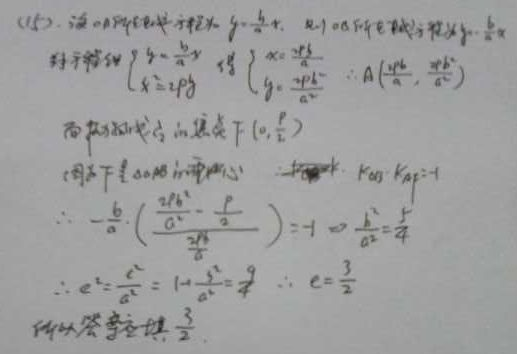 (15). 设OA所在直线方程为 y=\frac{b}{a}x, 则OB所在直线方程为 y=-\frac{b}{a}x
解方程组 \begin{cases} y=\frac{b}{a}x \\ x^2=2py \end{cases} 得 \begin{cases} x=\frac{2pb}{a} \\ y=\frac{2pb^2}{a^2} \end{cases} ∴ A(\frac{2pb}{a}, \frac{2pb^2}{a^2})
而抛物线C_2的焦点F(0, \frac{p}{2})
因为F是△OAB的垂心 ∴ K_{OB}·K_{AF}=-1
∴ -\frac{b}{a}·(\frac{\frac{2pb^2}{a^2}-\frac{p}{2}}{\frac{2pb}{a}})=-1 ⇒ \frac{b^2}{a^2}=\frac{5}{4}
∴ e^2=\frac{c^2}{a^2}=1+\frac{b^2}{a^2}=\frac{9}{4} ∴ e=\frac{3}{2}
所以答案应填 \frac{3}{2}.